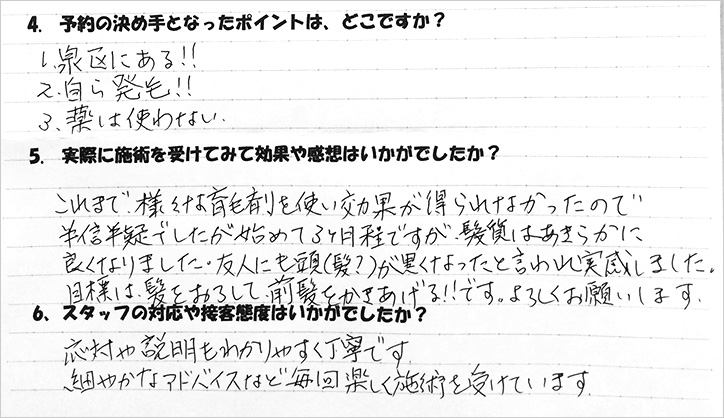 4. 予約の決め手となったポイントは、どこですか？
1.泉区にある!!
2.自ら発毛!!
3、薬は使わない.
5. 実際に施術を受けてみて効果や感想はいかがでしたか？
これまで、様々な育毛剤を使い効果が得られなかったので
半信半疑でしたが始めて3ヶ月程ですが、髪質はあきらかに
良くなりました・友人にも頭(髪?)が黒くなったと言われ実感しました。
目標は、髪をおろして、前髪をかきあげる!!です。よろしくお願いします.
6、スタッフの対応や接客態度はいかがでしたか？
応対や説明もわかりやすく丁寧です.
細やかなアドバイスなど毎回楽しく施術を受けています.